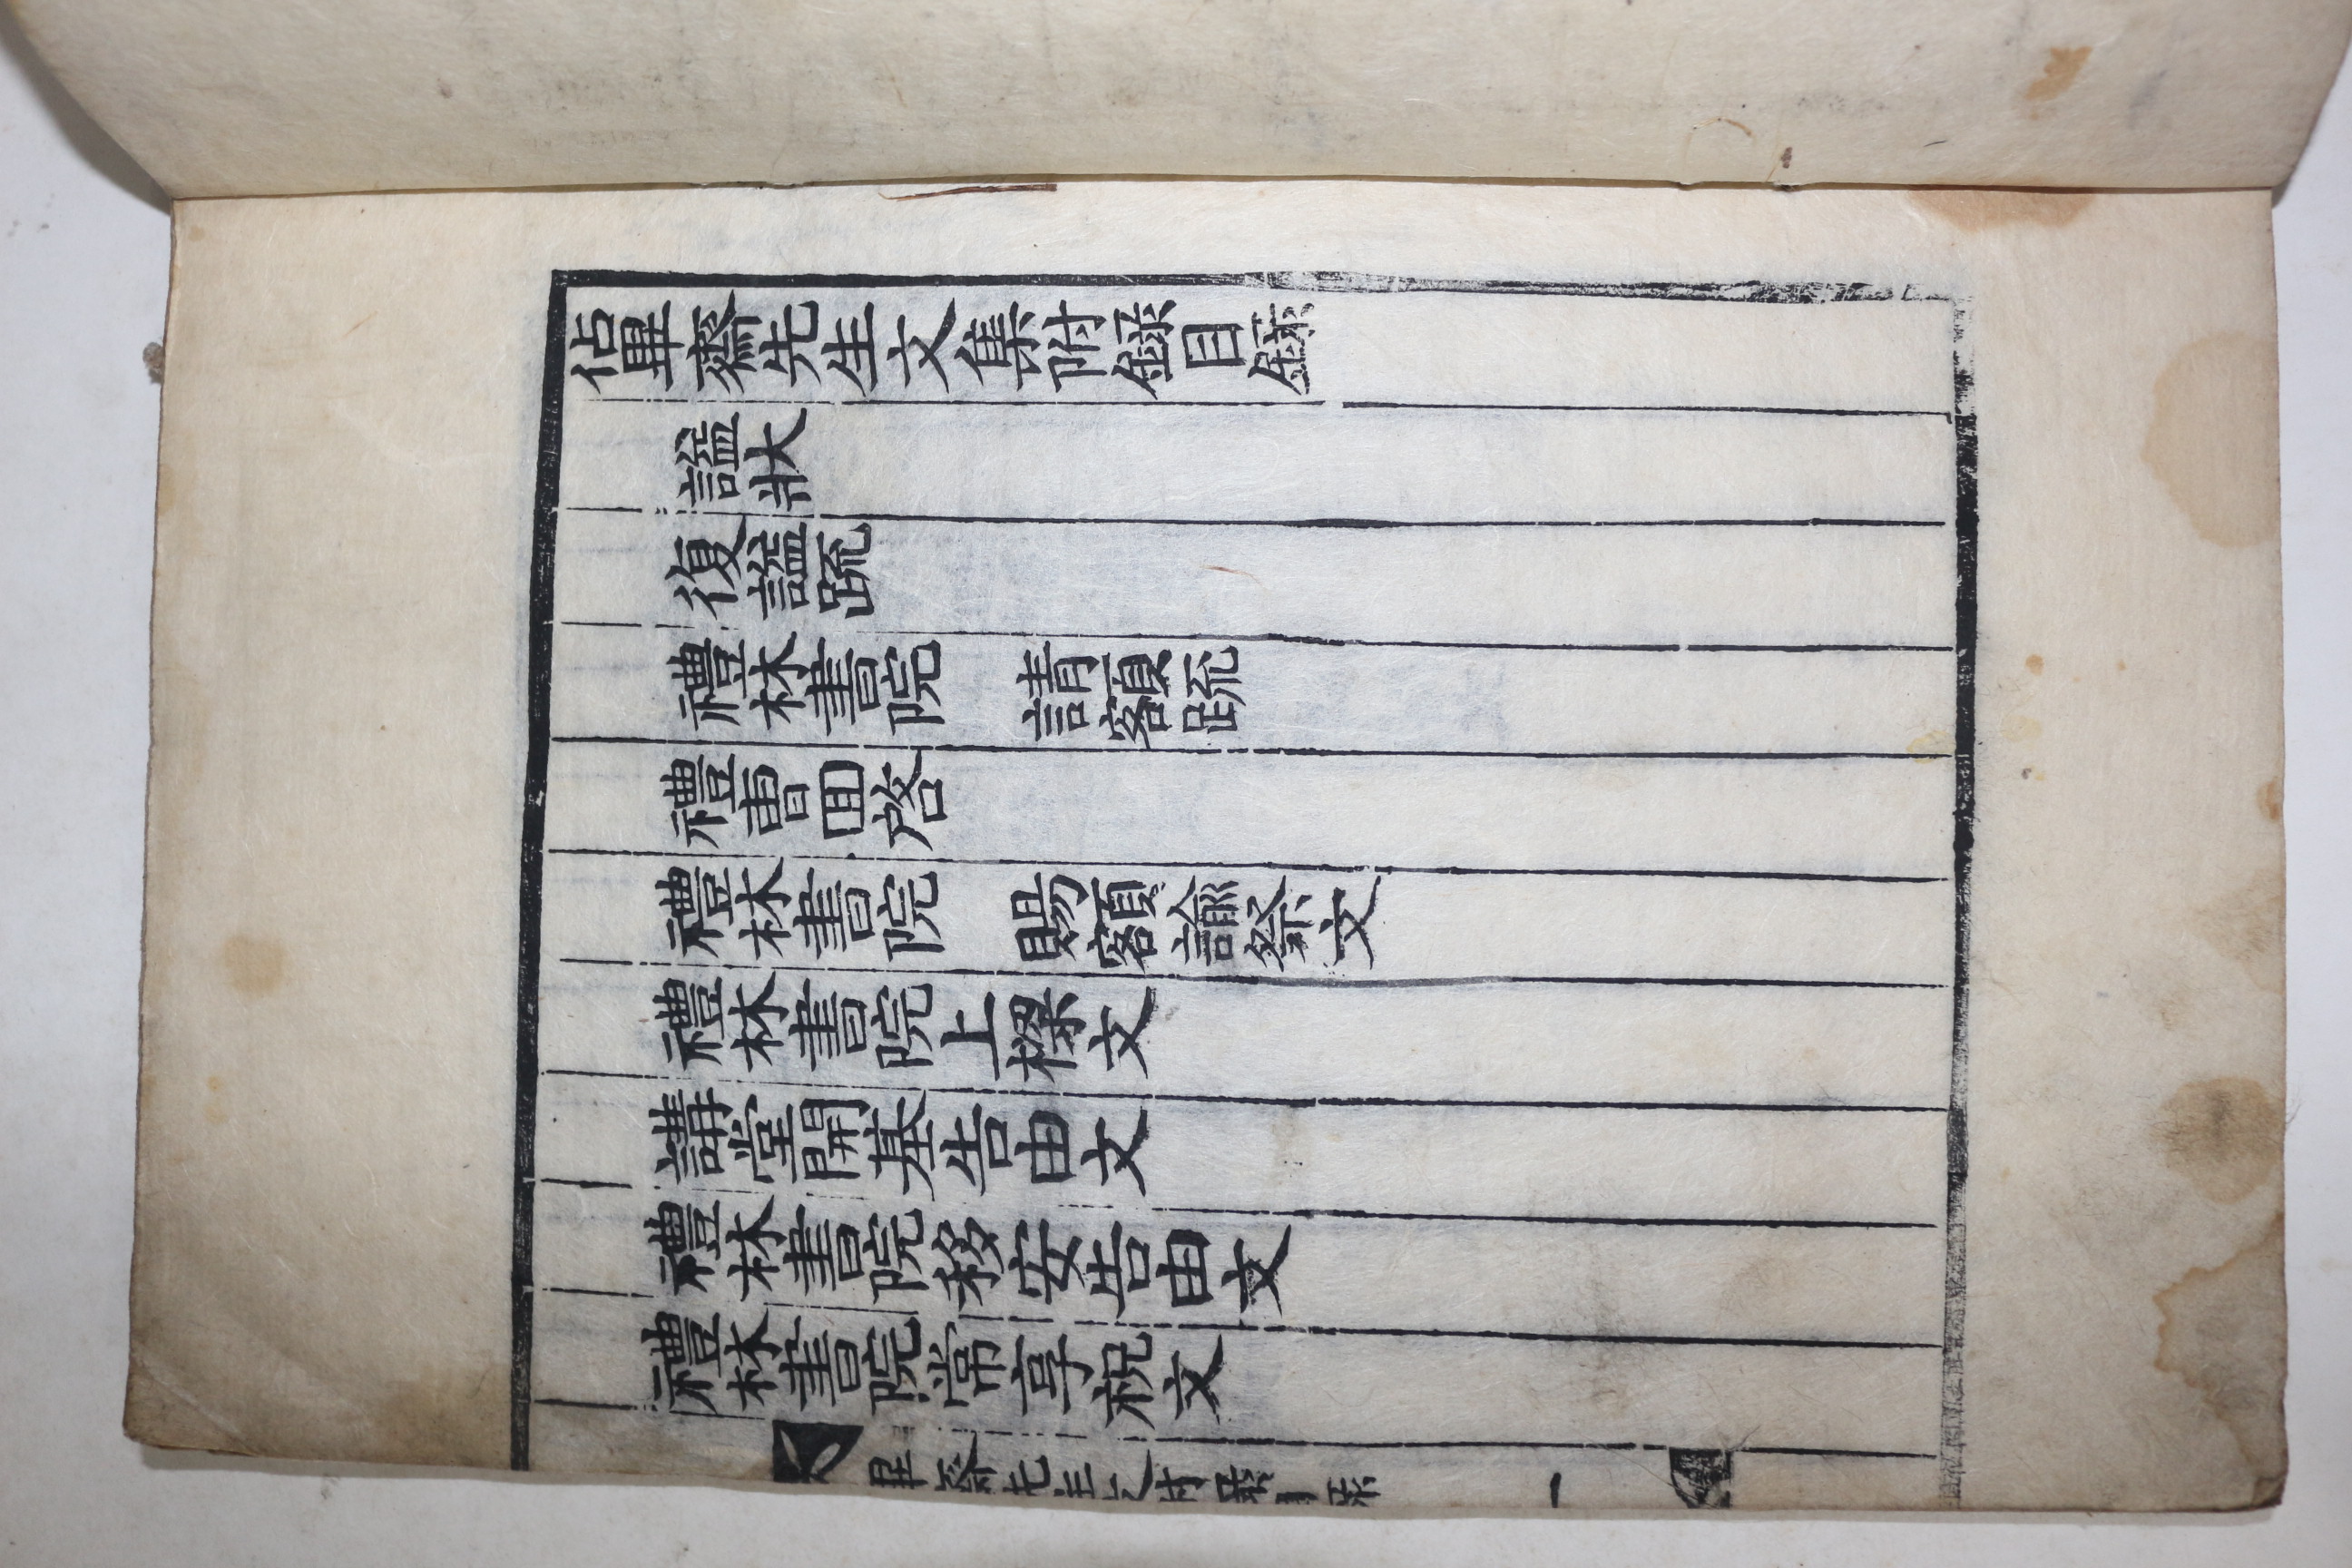 佔畢齋先生文集附錄目錄
諡狀
復諡疏
禮林書院 請額疏
禮曺回啓
禮林書院 賜額諭祭文
禮林書院上樑文
講堂開基告由文
禮林書院移安告由文
禮林書院常享祝文
畢齋先生文附錄目錄 一